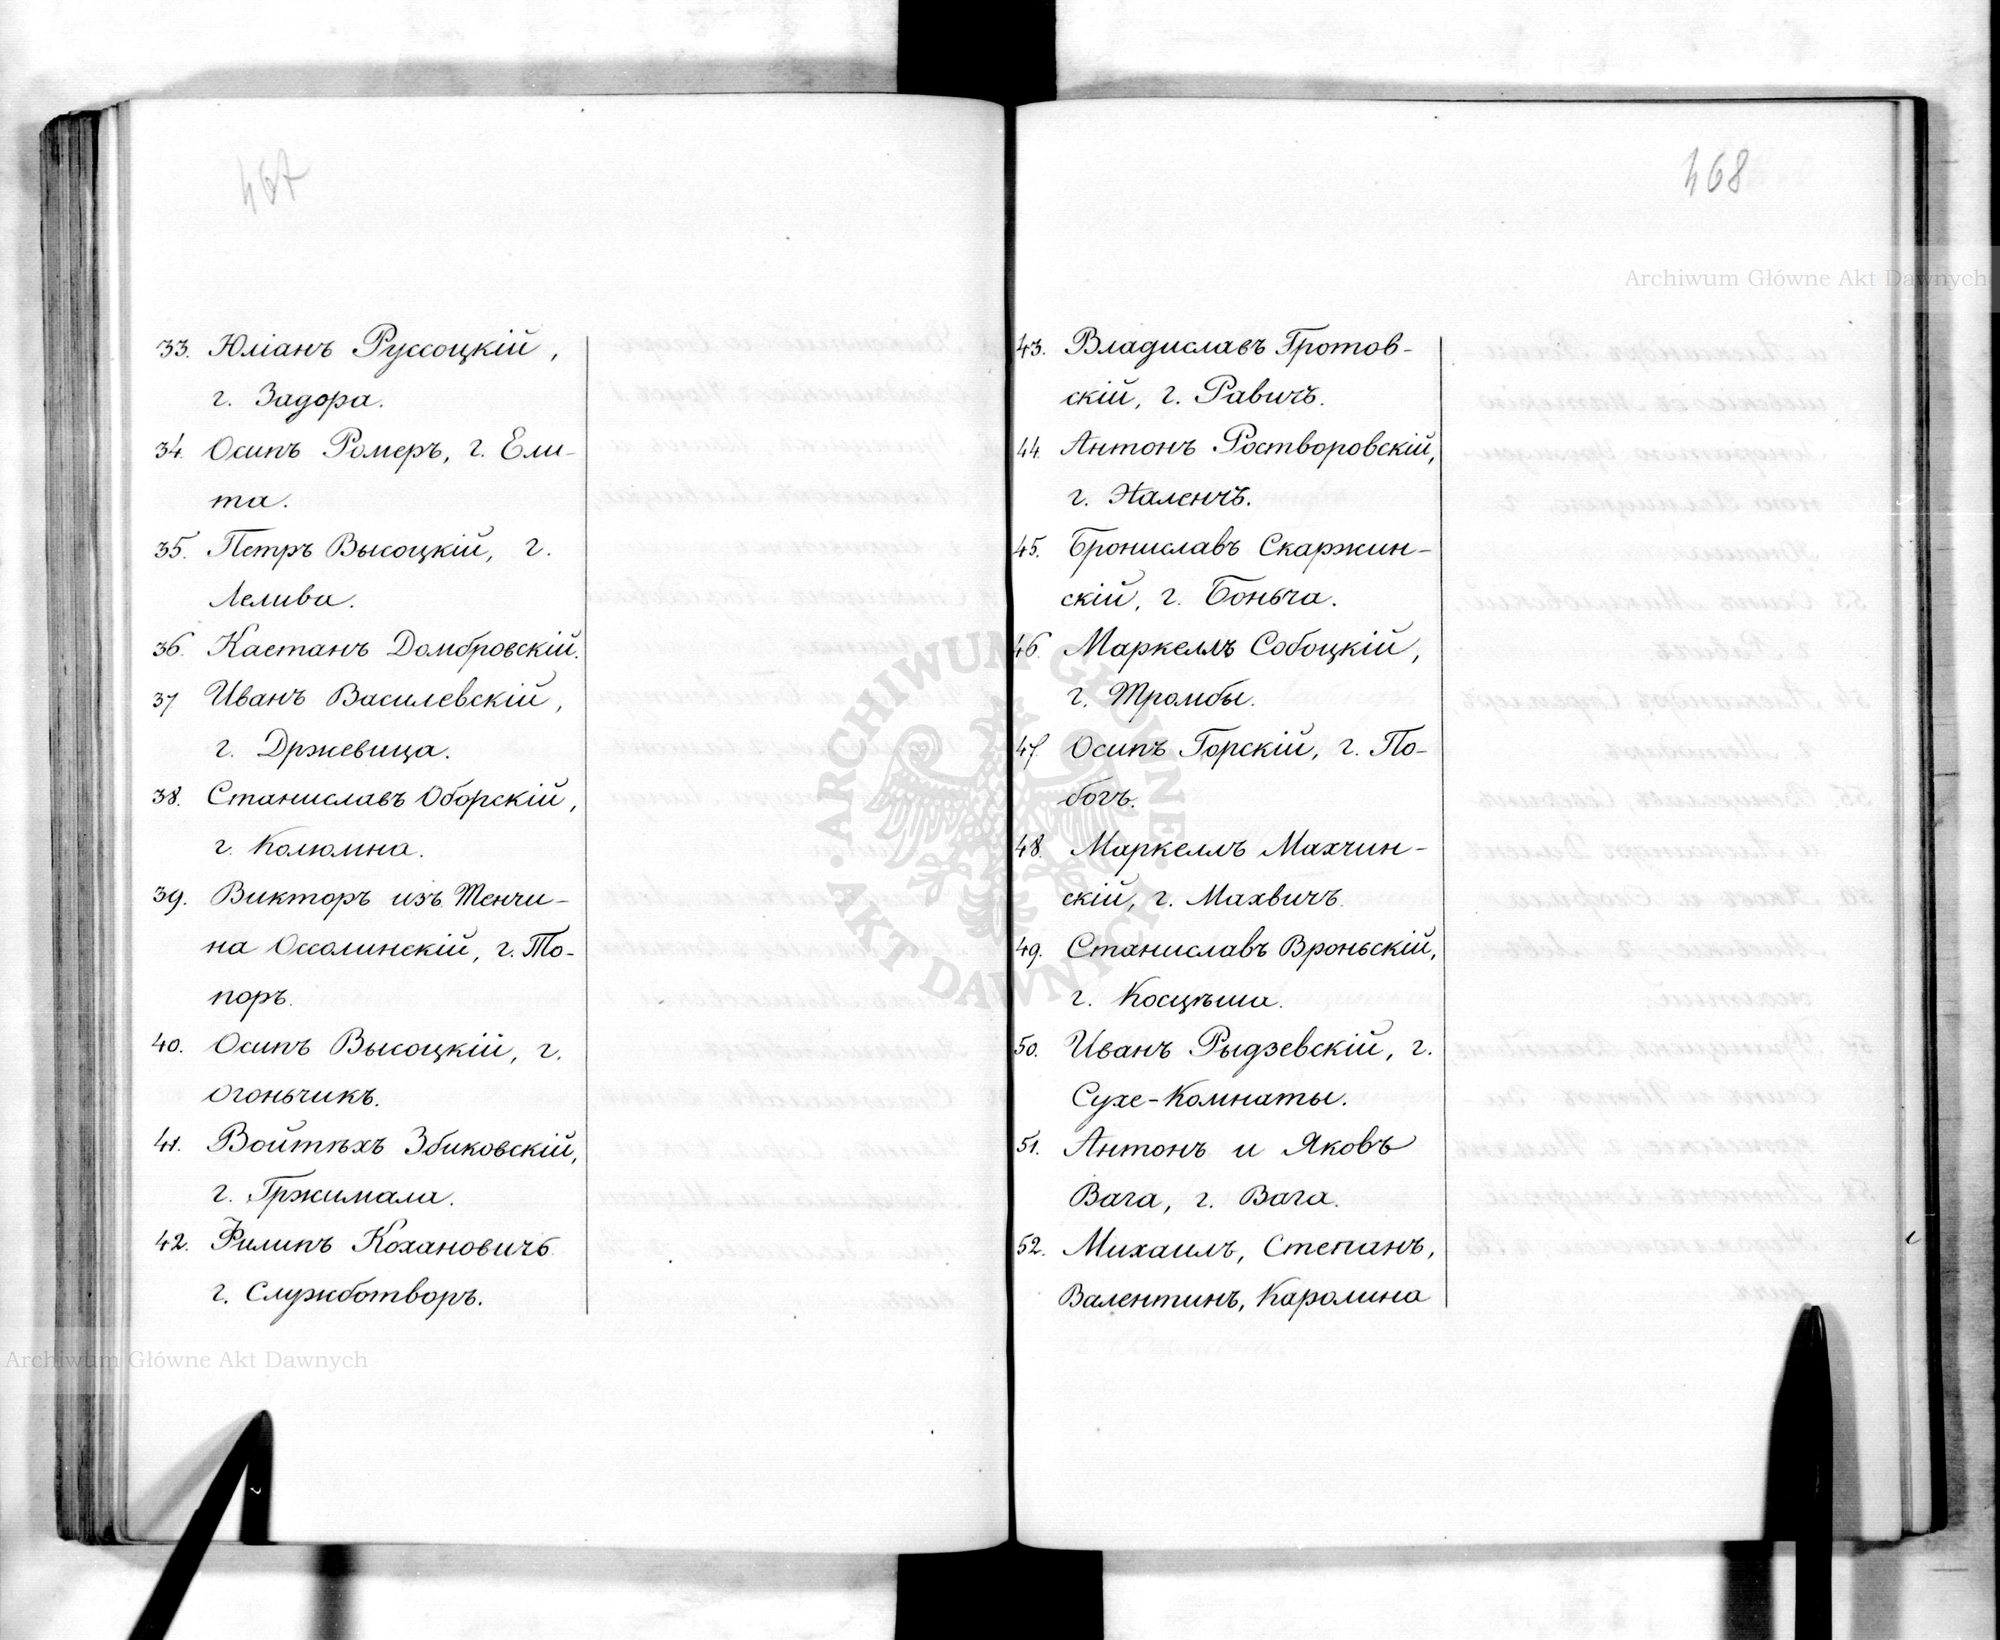 467
33. Юліанъ Руссоцкій,
г. Задора.
34. Осипъ Ромеръ, г. Ели-
та.
35. Петръ Высоцкій, г.
Лелива.
36. Каетанъ Домбровскій.
37 Иванъ Василевскій,
г. Држевица.
38. Станиславъ Оборскій,
г. Колюмна.
39. Викторъ изъ Тенчи-
на Оссолинскій, г. То-
поръ.
40. Осипъ Высоцкій, г.
Огоньчикъ.
41. Войтѣхъ Збиковскій,
г. Гржимала.
42. Филипъ Кохановичъ
г. Службботворъ.
468
43. Владиславъ Гротов-
скій, г. Равичъ.
44. Антонъ Ростворовскій,
г. Наленчъ.
45. Брониславъ Скаржин-
скій, г. Боньча.
46. Маркеллъ Собоцкій,
г. Тромбы.
47. Осипъ Горскій, г. По-
богъ.
48. Маркеллъ Махчин-
скій, г. Махвичъ.
49. Станиславъ Вроньскій,
г. Косцѣша.
50. Иванъ Рыдзевскій, г.
Сухе-Комнаты.
51. Антонъ и Яковъ
Вага, г. Вага.
52. Михаилъ, Степанъ,
Валентинъ, Каролина
Archiwum Główne Akt Dawnych
Archiwum Główne Akt Dawnych
ARCHIWUM GŁÓWNE AKT DAWNYCH